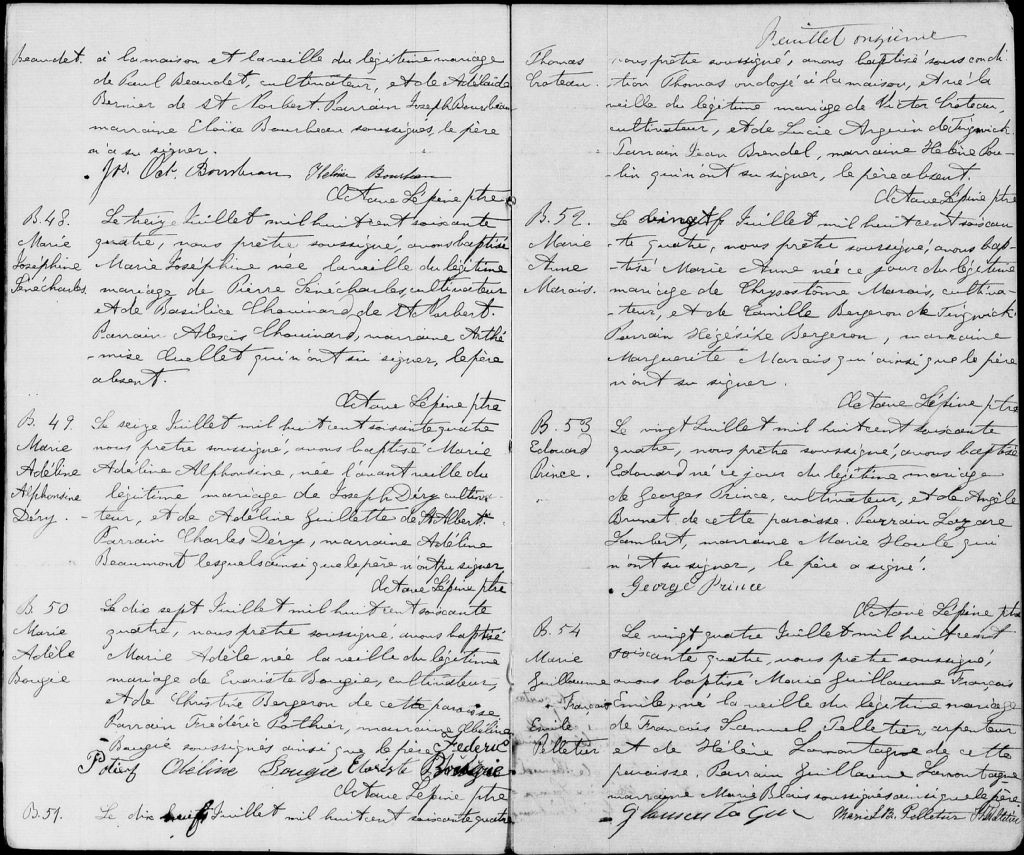 Beaudet. à la maison et la veille du légitime mariage
de Paul Beaudet, cultivateur, et de Adélaïde
Bernier de St Norbert. Parrain Joseph Bourbeau
marraine Eloïse Bourbeau soussignés, le père
n'a su signer.
Jos. Oct. Bourbeau Bourbeau
Octave Lépine ptre
B. 48. Le treize Juillet mil huit cent soixante
Marie quatre, nous prêtre soussigné, avons baptisé
Joséphine Marie Joséphine née la veille du légitime
Sénécharles. mariage de Pierre Sénécharles, cultivateur
et de Basilice Chouinard, de St Norbert.
Parrain Alexis Chouinard, marraine Arthé-
-mise Ouellet qui n'ont su signer, le père
absent.
Octave Lépine ptre
B. 49. Le seize Juillet mil huit cent soixante quatre
Marie nous prêtre soussigné, avons baptisé Marie
Adéline Adeline Alphonsine, née l'avant veille du
Alphonsine légitime mariage de Joseph Déry, cultiva-
Déry. -teur, et de Adéline Guillette de St Albert.
Parrain Charles Déry, marraine Adéline
Beaumont lesquels ainsi que le père n'ont pu signer
Octave Lépine ptre
B. 50 Le dix sept Juillet mil huit cent soixante
Marie quatre, nous prêtre soussigné, avons baptisé
Adèle Marie Adèle née la veille du légitime
Bougie mariage de Evariste Bougie, cultivateur,
et de Christine Bergeron de cette paroisse
Parrain Fréderic Pothier, marraine
Bougie soussignés ainsi que le père. Federic
Potier Obéline Bougie Evariste Bougie
Octave Lépine ptre
B. 51. Le dix neuf Juillet mil huit cent soixante quatre
Feuillet onzième
Thomas nous prêtre soussigné, avons baptisé sous condi-
Croteau. tion Thomas ondoyé à la maison, et né la
veille du légitime mariage de Victor Croteau,
cultivateur, et de Lucie Angevin de Tingwick
Parrain Jean Brendel, marraine Hélène Pou-
lin qui n'ont su signer, le père absent.
Octave Lépine ptre
B. 52. Le vingt Juillet mil huit cent soixan-
Marie -te quatre, nous prêtre soussigné, avons bap-
Anne -tisé Marie Anne née ce jour du légitime
Marais. mariage de Chrysostôme Marais, cultiva-
-teur, et de Camille Bergeron de Tingwick
Parrain Hégésipe Bergeron, marraine
Marguerite Marais qui ainsi que le père
n'ont su signer.
Octave Lépine ptre
B. 53 Le vingt Juillet mil huit cent soixante
Edouard quatre, nous prêtre soussigné, avons baptisé
Prince. Edouard né ce jour du légitime mariage
de Georges Prince, cultivateur, et de Angèle
Brunet de cette paroisse. Parrain Lazare
Lambert, marraine Marie Houle qui
n'ont su signer, le père a signé.
George Prince
Octave Lépine ptre
B. 54 Le vingt quatre Juillet mil huit cent
Marie soixante quatre, nous prêtre soussigné,
Guillaume avons baptisé Marie Guillaume François
François Emile, né la veille du légitime mariage
Emile de François Samuel Pelletier, arpenteur
Pelletier et de Hélène Lamontagne de cette
paroisse. Parrain Guillaume Lamontagne
marraine Marie Blais soussignés ainsi que le père
Marie B. Pelletier